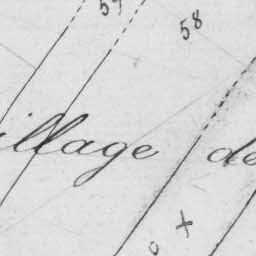 58
illage de